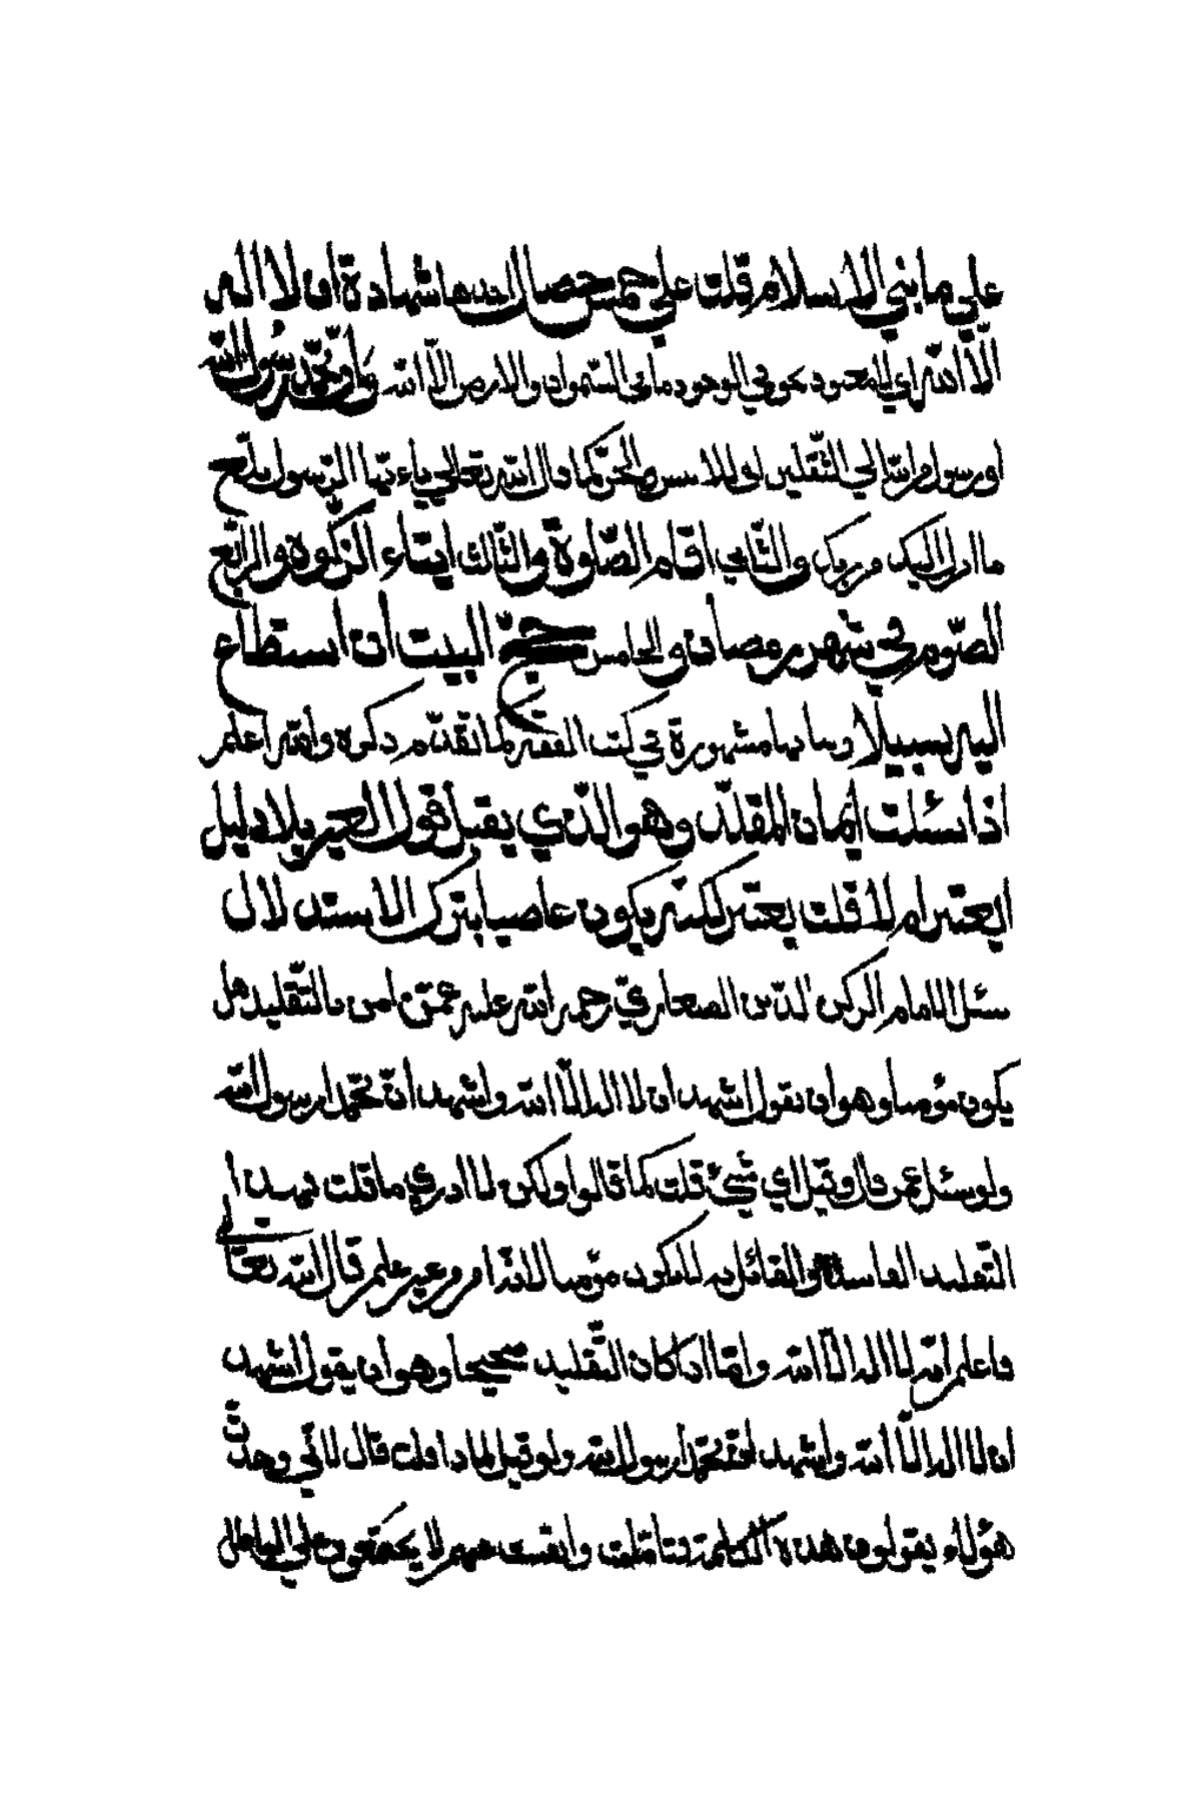 علي ما بني الاسلام قلت علي خمس خصال احدها شهادة ان لا اله
الّا الله اي لا معبود بحق في الوجود ما في السّموات والارض الّا الله وانّ محمّد رسول الله
اي رسول من الله الي الثّقلين اي الانس والجنّ كما قال الله تعالي يا ءيّها الرّسول بلّغ
ما انزل اليك من ربك والثّاني اقام الصّلوة والثّالث ايتاء الزّكوة والرابع
الصّوم في شهر رمضان والخامس حجّ البيت ان استطاع
اليه سبيلا وبيانها مشهورة في كتب الفقه كما تقدّم ذكره والله اعلم
اذا سئلت ايمان المقلّد وهو الّذي يقبل قول الغير بلا دليل
ايعتبر ام لا قلت يعتبر لكنّه يكون عاصيا بترك الاستدلال
سئل الامام الركن الدّين الصفاريّ رحمه الله عليه عمّن امن بالتّقليد هل
يكون مؤمنا وهو ان يقول اشهد ان لا اله الّا الله واشهد انّ محمّدا رسول الله
ولو سئل عمن قال وقيل اي شيئ قلت كما قالوا ولكن لا ادري ما قلت فهذا
التّقليد الفاسد والقائل به لا يكون مؤمنا لانّه امر من غير علم قال الله تعالي
فاعلم انّه لا اله الّا الله وامّا اذا كان التّقليد صحيحا وهو ان يقول اشهد
ان لا اله الّا الله واشهد انّ محمّدا رسول الله ولو قيل لماذا قلت قال لانّي وجدتّ
هؤلاء يقولون هذه الكلمة فتاملت وايقنت انهم لا يجتمعون علي الباطل